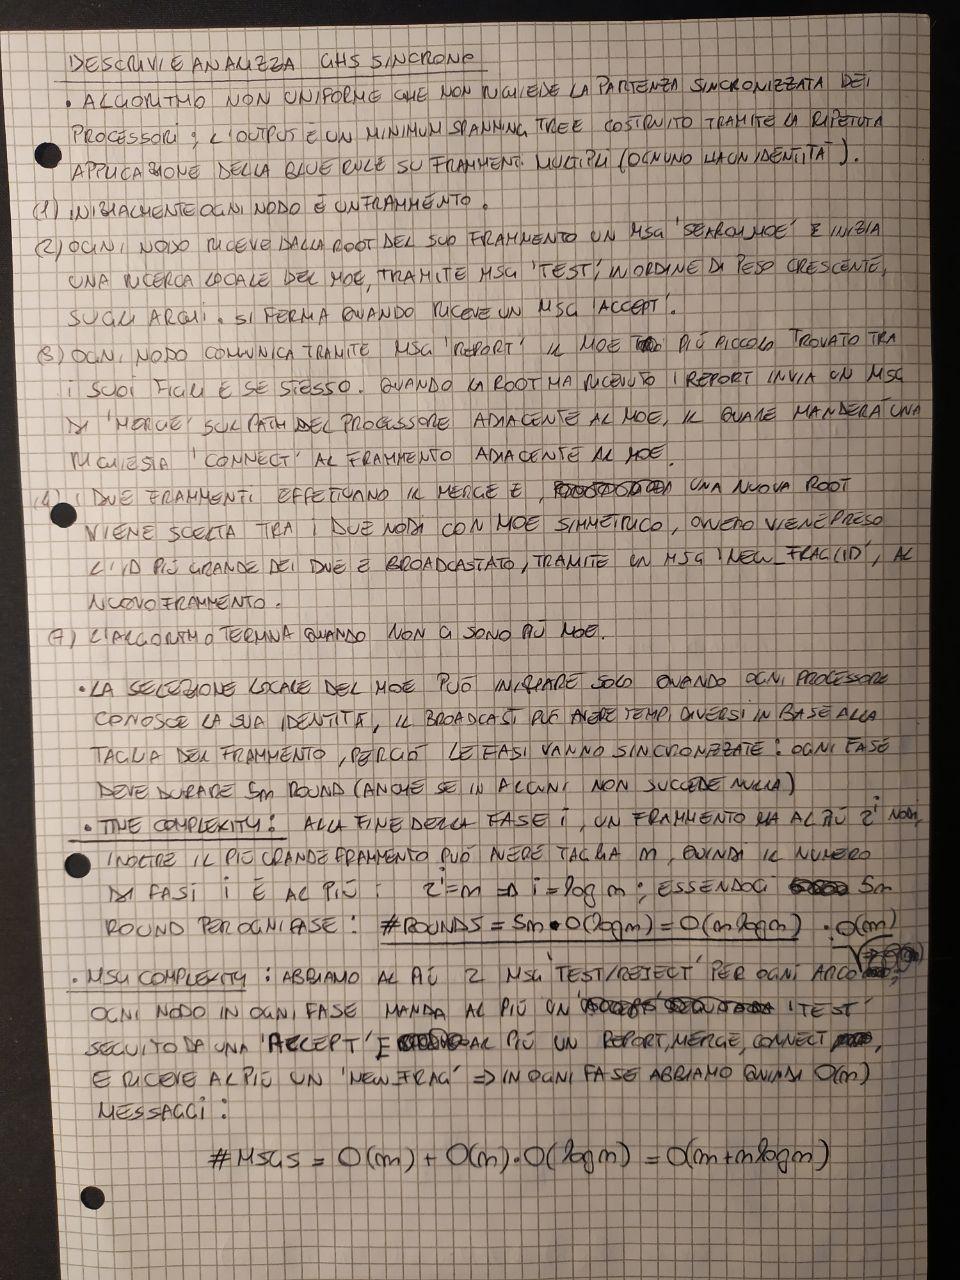 DESCRIVI E ANALIZZA GHS SINCRONO
• ALGORITMO NON UNIFORME CHE NON RICHIEDE LA PARTENZA SINCRONIZZATA DEI
PROCESSORI; L'OUTPUT È UN MINIMUM SPANNING TREE COSTRUITO TRAMITE LA RIPETUTA
APPLICAZIONE DELLA BLUE RULE SU FRAMMENTI MULTIPLI (OGNUNO HA UN IDENTITÀ).
(1) INIZIALMENTE OGNI NODO È UN FRAMMENTO.
(2) OGNI NODO RICEVE DALLA ROOT DEL SUO FRAMMENTO UN MSG 'SEARCH_MOE' E INIZIA
UNA RICERCA LOCALE DEL MOE, TRAMITE MSG 'TEST', IN ORDINE DI PESO CRESCENTE,
SUGLI ARCHI. SI FERMA QUANDO RICEVE UN MSG 'ACCEPT'.
(3) OGNI NODO COMUNICA TRAMITE MSG 'REPORT' IL MOE PIÙ PICCOLO TROVATO TRA
I SUOI FIGLI E SE STESSO. QUANDO LA ROOT HA RICEVUTO I REPORT INVIA UN MSG
DI 'MERGE' SUL PATH DEL PROCESSORE ADIACENTE AL MOE, IL QUALE MANDERÀ UNA
RICHIESTA 'CONNECT' AL FRAMMENTO ADIACENTE AL MOE.
(4) I DUE FRAMMENTI EFFETTUANO IL MERGE E, UNA NUOVA ROOT
VIENE SCELTA TRA I DUE NODI CON MOE SIMMETRICO, OVVERO VIENE PRESO
L'ID PIÙ GRANDE DEI DUE E BROADCASTATO, TRAMITE UN MSG 'NEW_FRAG(ID)', AL
NUOVO FRAMMENTO.
(7) L'ALGORITMO TERMINA QUANDO NON CI SONO PIÙ MOE.
• LA SELEZIONE LOCALE DEL MOE PUÒ INIZIARE SOLO QUANDO OGNI PROCESSORE
CONOSCE LA SUA IDENTITÀ, IL BROADCAST PUÒ AVERE TEMPI DIVERSI IN BASE ALLA
TAGLIA DEL FRAMMENTO, PERCIÒ LE FASI VANNO SINCRONIZZATE: OGNI FASE
DEVE DURARE 5n ROUND (ANCHE SE IN ALCUNI NON SUCCEDE NULLA)
• TIME COMPLEXITY: ALLA FINE DELLA FASE i, UN FRAMMENTO HA AL PIÙ 2^i NODI,
INOLTRE IL PIÙ GRANDE FRAMMENTO PUÒ AVERE TAGLIA n, QUINDI IL NUMERO
DI FASI i È AL PIÙ: 2^i = n ⇒ i = log n; ESSENDOCI 5n
ROUND PER OGNI FASE: #ROUNDS = 5n • O(log n) = O(n log n) • O(m)
• MSG COMPLEXITY: ABBIAMO AL PIÙ 2 MSG 'TEST/REJECT' PER OGNI ARCO;
OGNI NODO IN OGNI FASE MANDA AL PIÙ UN 'TEST'
SEGUITO DA UNA 'ACCEPT' E AL PIÙ UN REPORT, MERGE, CONNECT,
E RICEVE AL PIÙ UN 'NEW_FRAG' ⇒ IN OGNI FASE ABBIAMO QUINDI O(n)
MESSAGGI:
#MSGS = O(m) + O(n)·O(log n) = O(m+n log n)